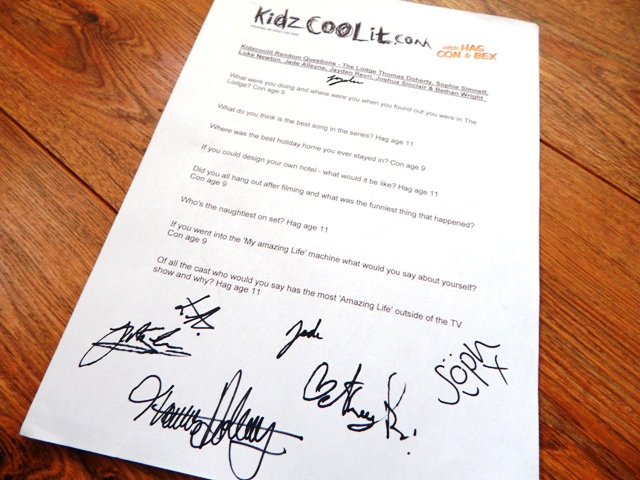 KidzCOOLit.com
with HAG
CON & BEX
Kidzcoolit Random Questions - The Lodge Thomas Doherty, Sophie Simnett,
Luke Newton, Jade Alleyne, Jayden Revri, Joshua Sinclair & Bethan Wright
What were you doing and where were you when you found out you were in The
Lodge? Con age 9
What do you think is the best song in the series? Hag age 11
Where was the best holiday home you ever stayed in? Con age 9
If you could design your own hotel - what would it be like? Hag age 11
Did you all hang out after filming and what was the funniest thing that happened?
Con age 9
Who's the naughtiest on set? Hag age 11
If you went into the 'My amazing Life' machine what would you say about yourself?
Con age 9
Of all the cast who would you say has the most 'Amazing Life' outside of the TV
show and why? Hag age 11
Jade
Soph x